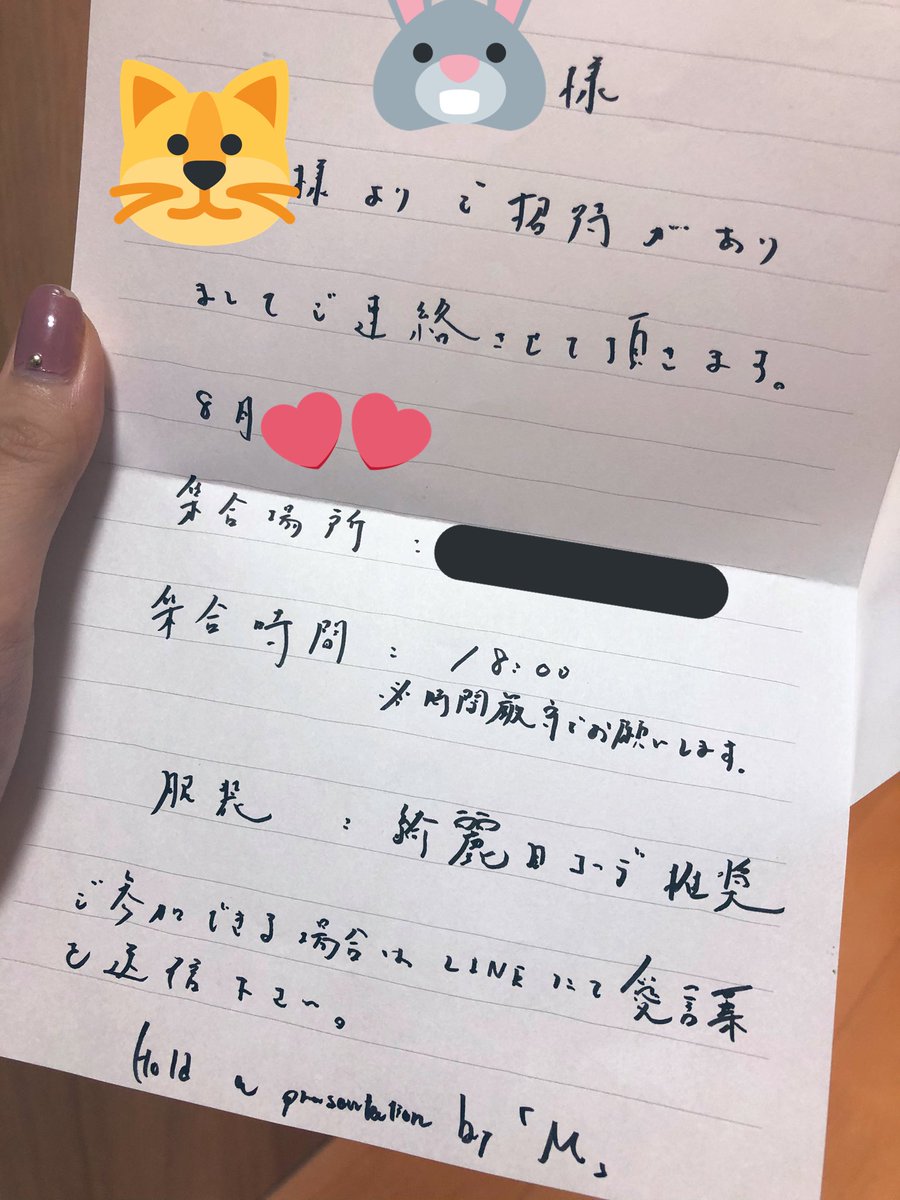 様
様よりご招待があり
ましてご連絡させて頂きます。
8月
集合場所：
集合時間：18:00
※時間厳守でお願いします。
服装：綺麗目コーデ推奨
ご参加できる場合はLINEにて愛言葉
を送信下さい。
Hold a presentation by「M」